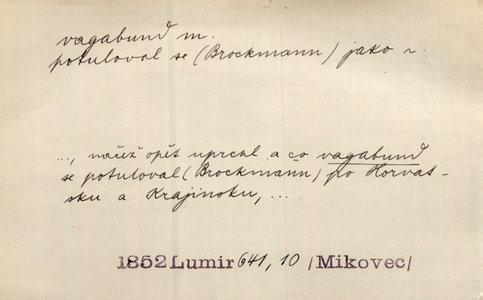 vagabund m.
potuloval se (Brockmann) jako v.
..., načež opět uprchl a co vagabund
se potuloval (Brockmann) po Horvat-
sku a Krajinsku, ...
1852 Lumír 641, 10 /Mikovec/